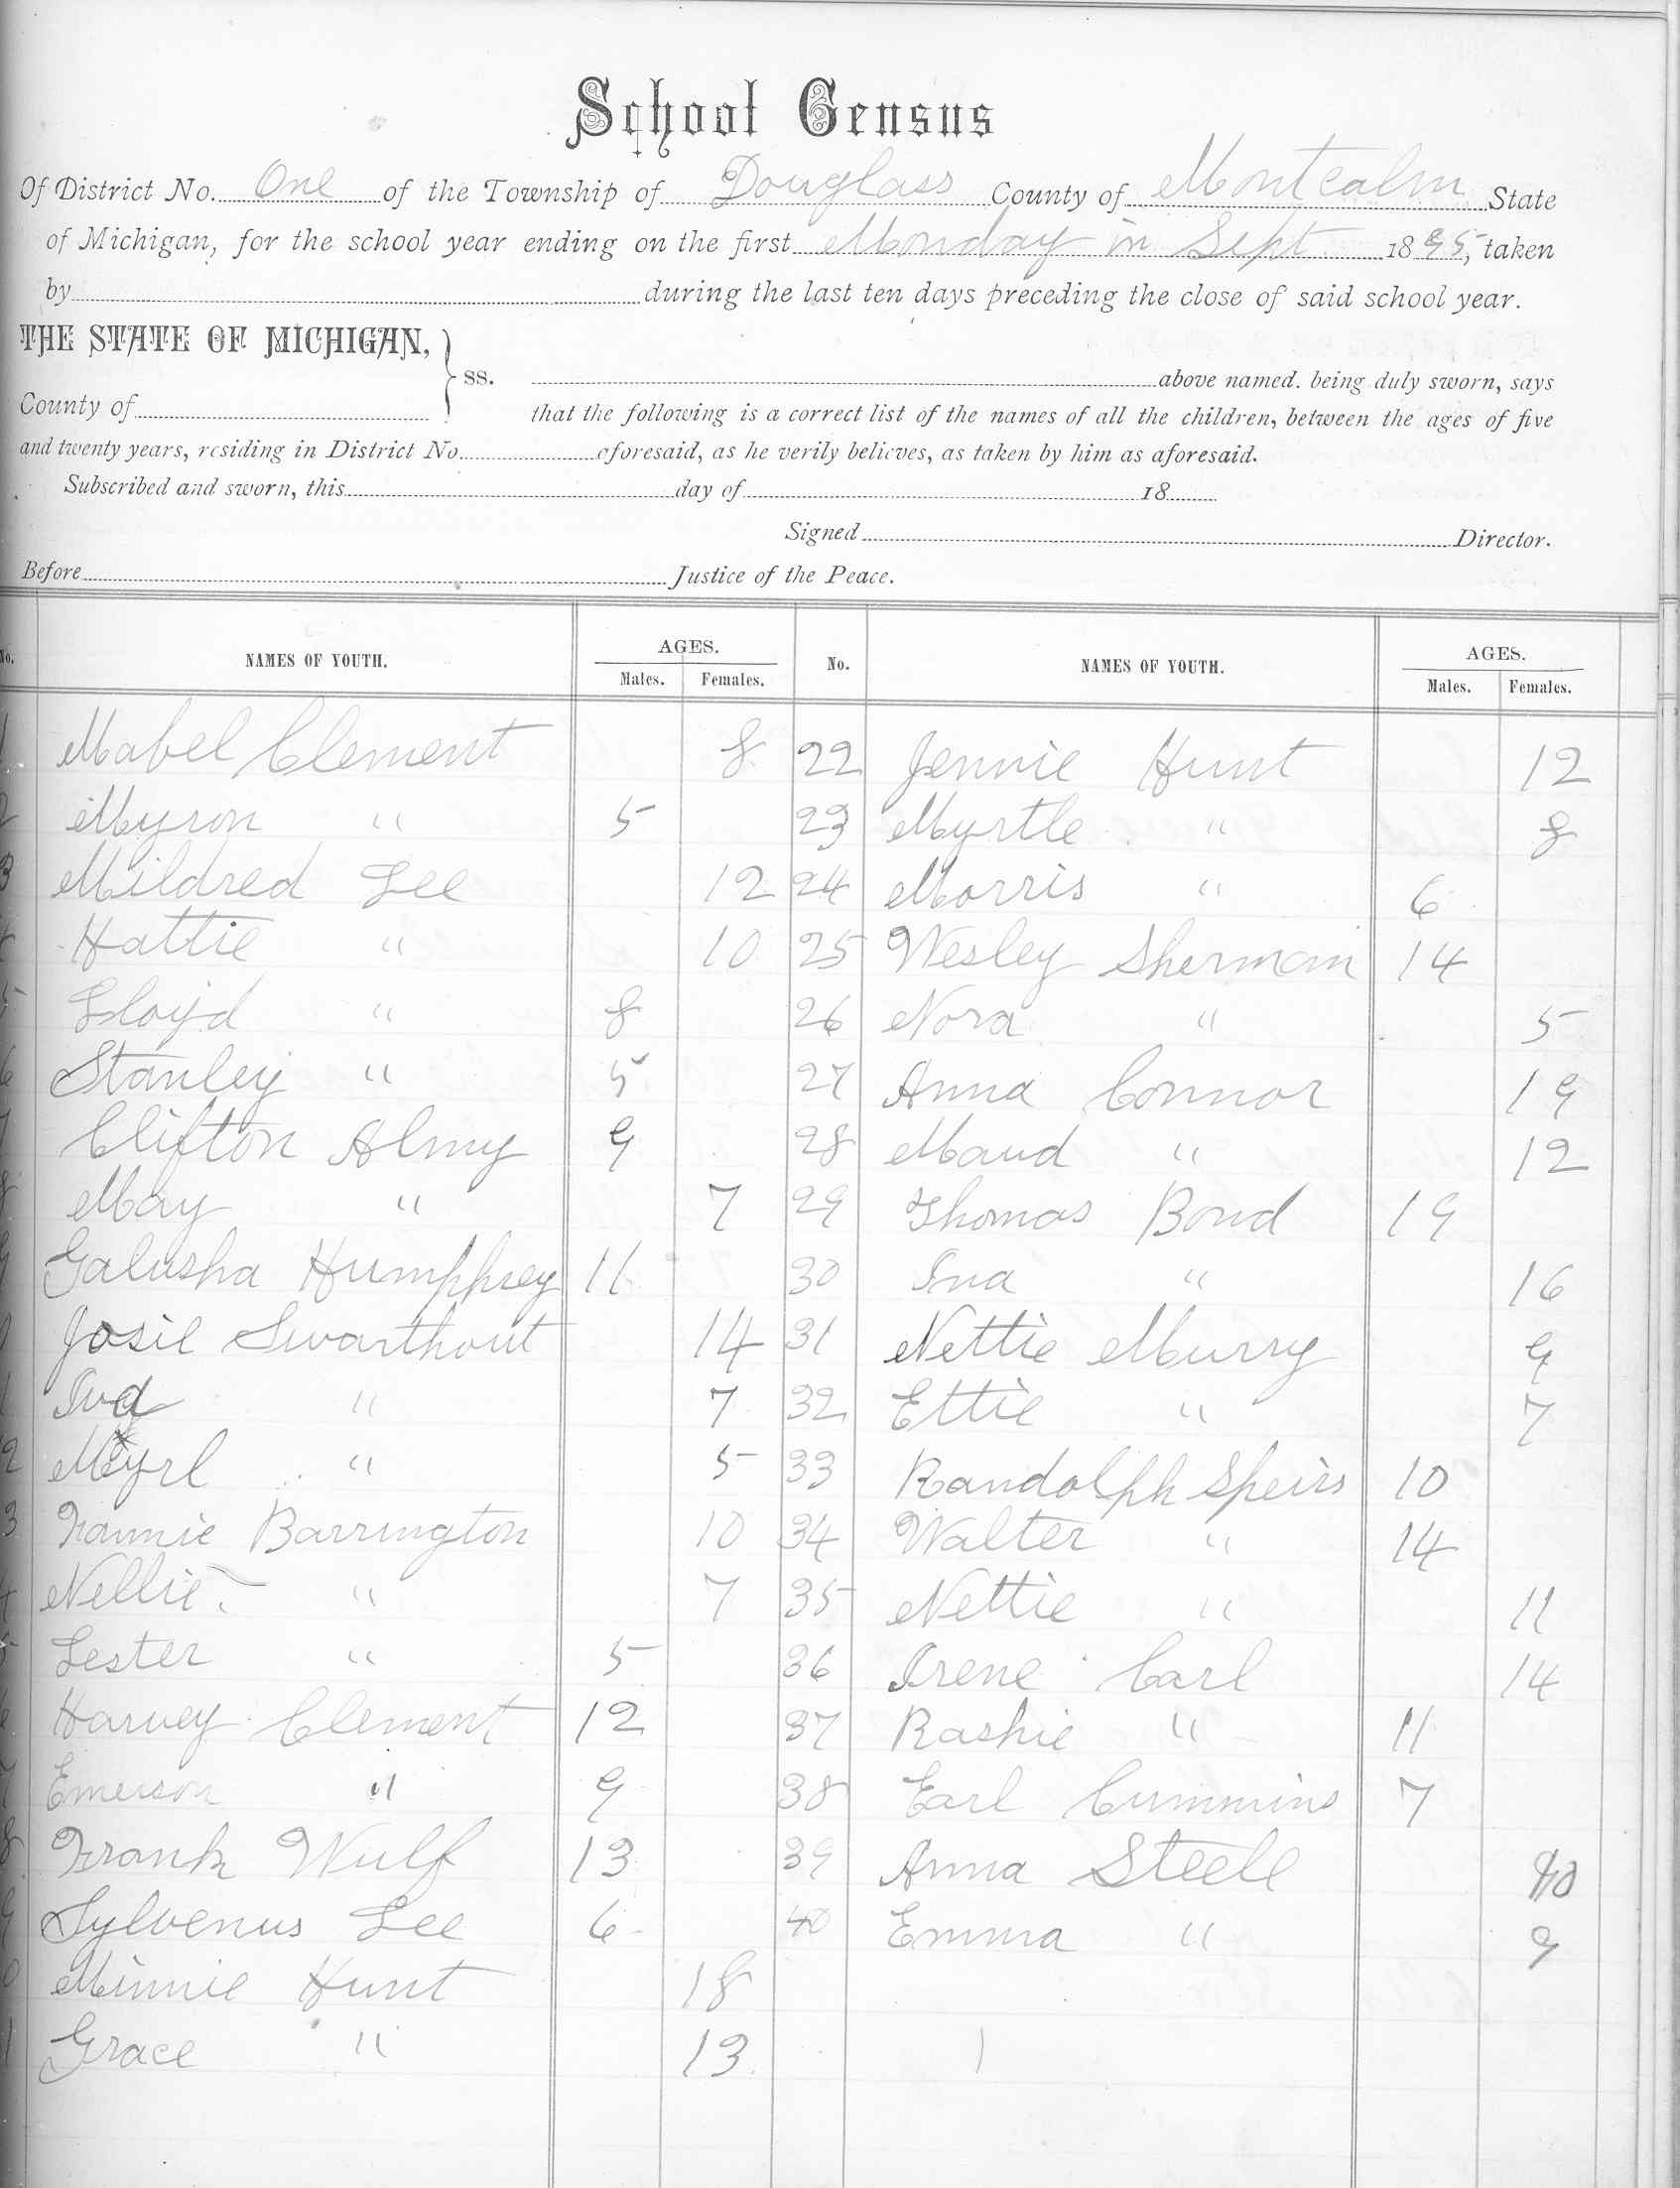 School Census
Of District No. One of the Township of Douglass County of Montcalm State
of Michigan, for the school year ending on the first Monday in Sept 1895, taken
by during the last ten days preceding the close of said school year.
THE STATE OF MICHIGAN, } ss.
above named. being duly sworn, says
County of
that the following is a correct list of the names of all the children, between the ages of five
and twenty years, residing in District No aforesaid, as he verily believes, as taken by him as aforesaid.
Subscribed and sworn, this day of 18
Signed Director.
Before Justice of the Peace.
No. NAMES OF YOUTH. AGES. Males. Females.
1 Mabel Clement 8
2 Myron " 5
3 Mildred Lee 12
4 Hattie " 10
5 Lloyd " 8
6 Stanley " 5
7 Clifton Almy 9
8 May " 7
9 Galusha Humphrey 11
0 Josie Swarthout 14
1 Iva " 7
2 Myrl " 5
3 Fannie Barrington 10
4 Nellie " 7
5 Lester " 5
6 Harvey Clement 12
7 Emerson " 9
8 Frank Wulf 13
9 Sylvenus Lee 6
0 Minnie Hunt 18
1 Grace " 13
No. NAMES OF YOUTH. AGES. Males. Females.
22 Jennie Hunt 12
23 Myrtle " 8
24 Morris " 6
25 Wesley Sherman 14
26 Nora " 5
27 Anna Connor 19
28 Maud " 12
29 Thomas Bond 19
30 Ina " 16
31 Nettie Murry 9
32 Ettie " 7
33 Randolph Speirs 10
34 Walter " 14
35 Nettie " 11
36 Irene Carl 14
37 Rashie " 11
38 Earl Cummins 7
39 Anna Steele 10
40 Emma " 9